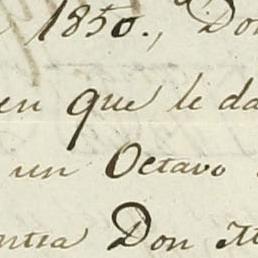 1850., Do
en que le da
un Octavo
Don